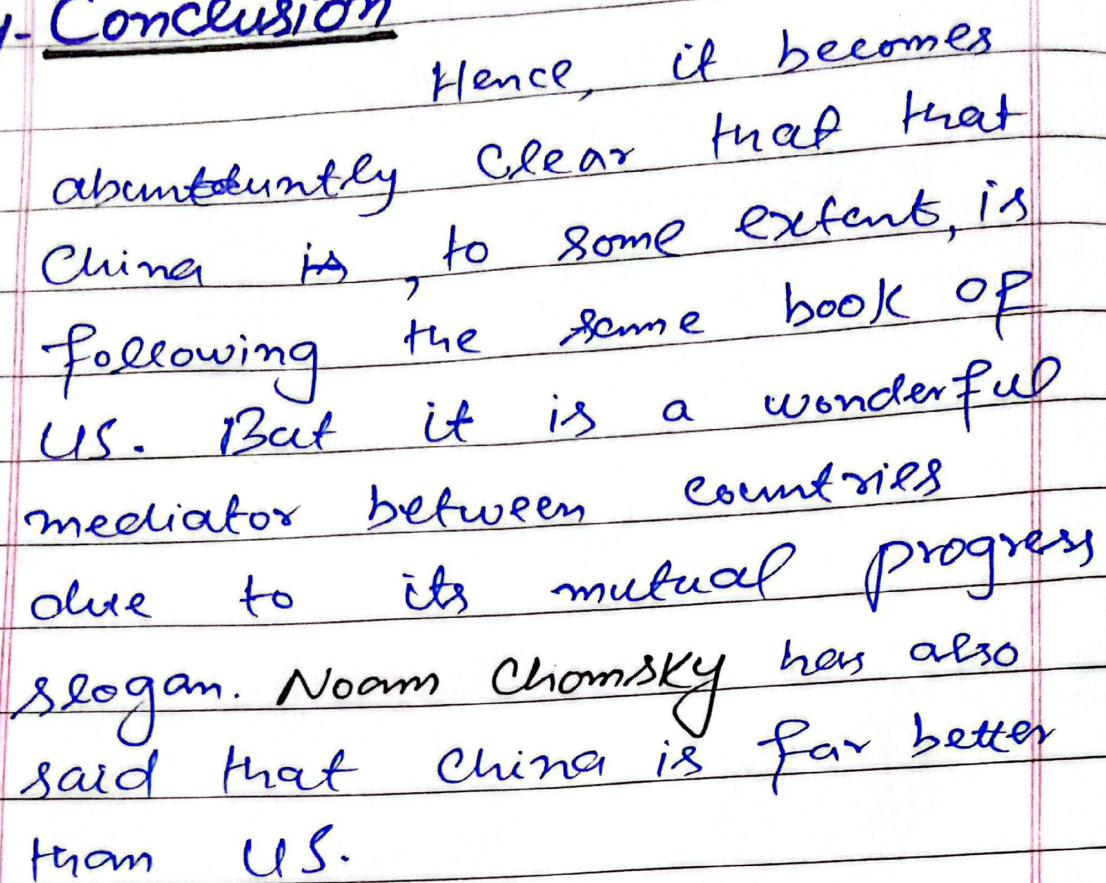 - Conclusion
Hence, it becomes
abuntduntly clear that that
China is, to some extent, is
following the same book of
US. But it is a wonderful
mediator between countries
due to its mutual progress
slogan. Noam Chomsky has also
said that China is far better
than US.